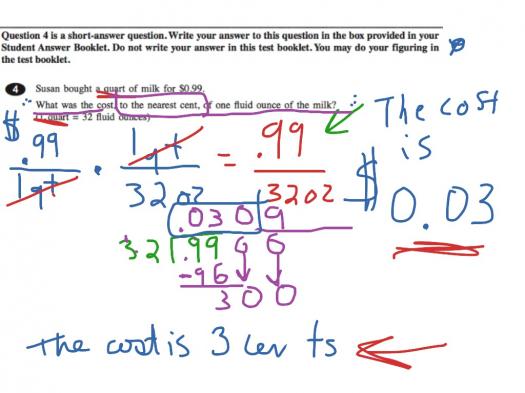 Question 4 is a short-answer question. Write your answer to this question in the box provided in your
Student Answer Booklet. Do not write your answer in this test booklet. You may do your figuring in
the test booklet.
4 Susan bought a quart of milk for $0.99.
What was the cost, to the nearest cent, of one fluid ounce of the milk?
(1 quart = 32 fluid ounces)
The cost
is
$ 0.03
$ .99 / 1qt · 1qt / 32oz = .99 / 32oz
.0309
32 .9900
-96
300
The cost is 3 cents